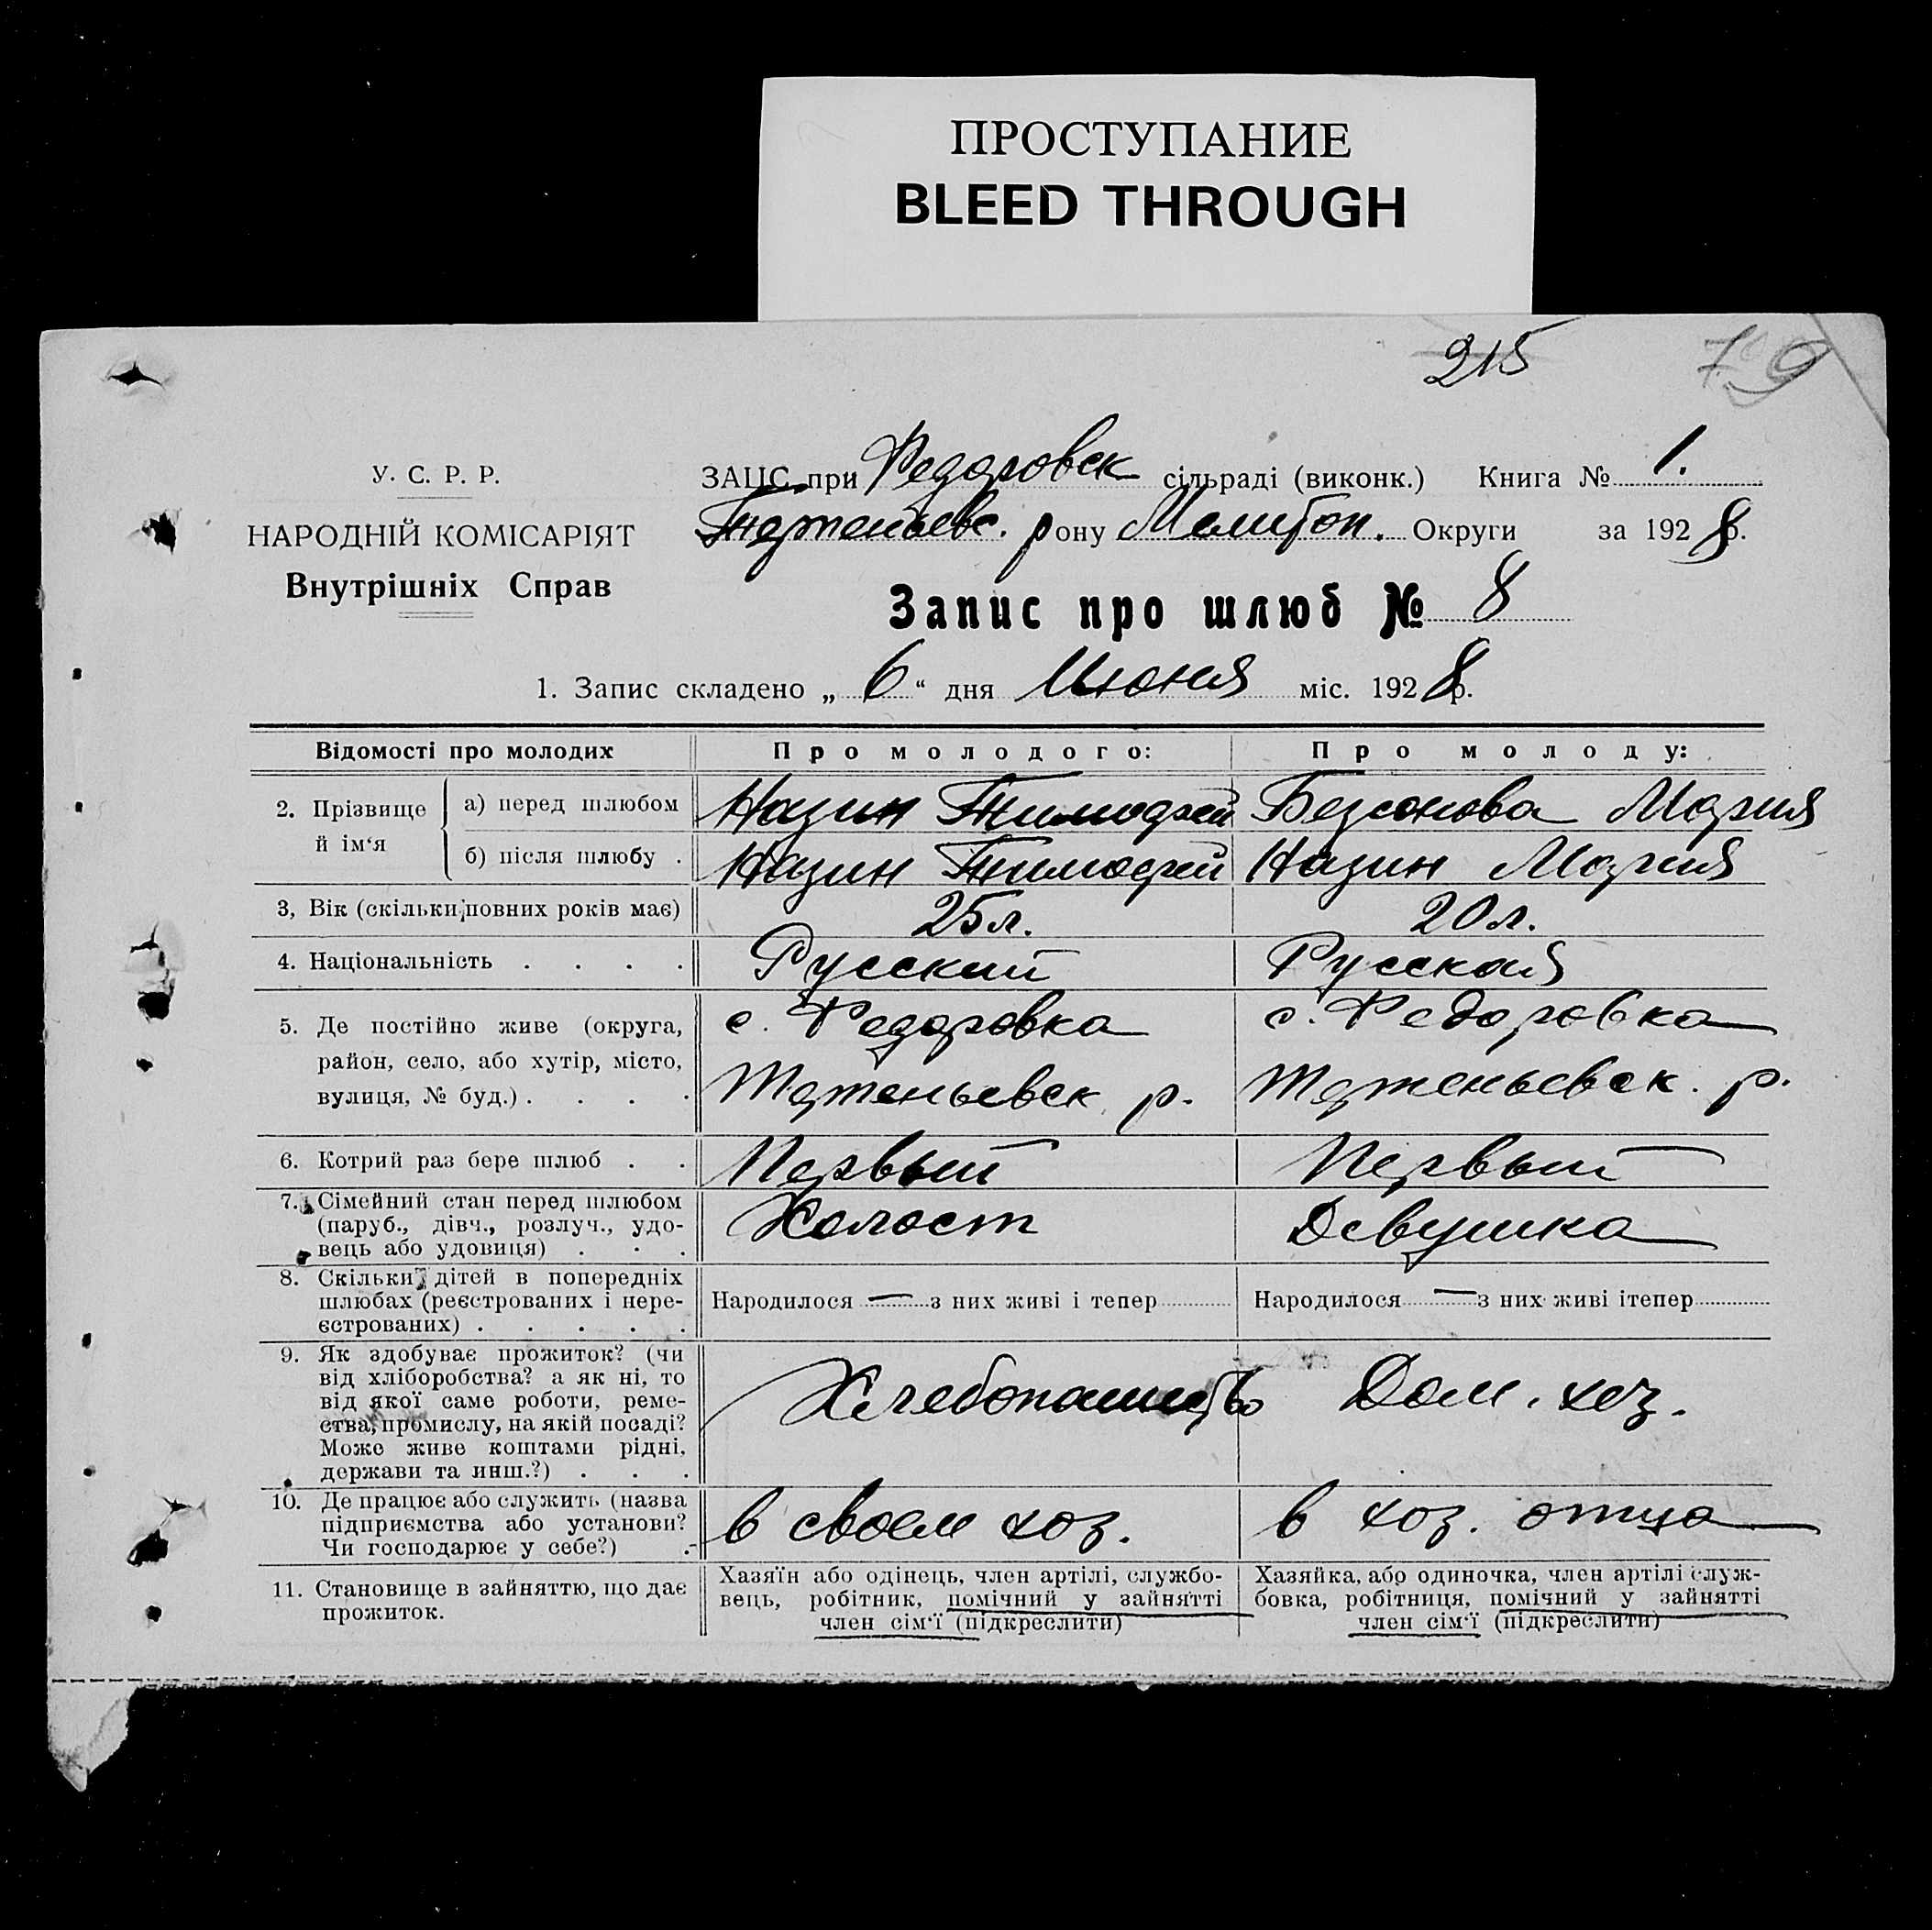 ПРОСТУПАНИЕ
BLEED THROUGH
215
9
У. С. Р. Р.
НАРОДНІЙ КОМІСАРІЯТ
Внутрішніх Справ
ЗАЦС при Федоровск сільраді (виконк.) Книга № 1.
рону Мелитоп. Округи за 1928 р.
Запис про шлюб № 8
1. Запис складено „ 6 “ дня Июня міс. 1928 р.
Відомості про молодих Про молодого: Про молоду:
2. Прізвище й ім‘я
а) перед шлюбом Назин Тимофей Безсонова Мария
б) після шлюбу . Назин Тимофей Назин Мария
3, Вік (скільки повних років має) 25 л. 20 л.
4. Національність . . . . Русский Русская
5. Де постійно живе (округа, с. Федоровка с. Федоровка
район, село, або хутір, місто, р. р.
вулиця, № буд.) . . . .
6. Котрий раз бере шлюб . . Первый Первый
7. Сімейний стан перед шлюбом
(паруб., дівч., розлуч., удо- Холост Девушка
вець або удовиця) . . .
8. Скільки дітей в попередніх
шлюбах (реєстрованих і нере- Народилося — з них живі і тепер Народилося — з них живі ітепер
єстрованих) . . . . .
9. Як здобуває прожиток? (чи
від хліборобства? а як ні, то
від якої саме роботи, реме- Хлебопашество Дом. хоз.
ства, промислу, на якій посаді?
Може живе коштами рідні,
держави та инш.?) . . .
10. Де працює або служить (назва
підприємства або установи? в своем хоз. в хоз. отца
Чи господарює у себе?) .
11. Становище в зайняттю, що дає прожиток.
Хазяїн або одінець, член артілі, службо- Хазяйка, або одиночка, член артілі служ-
вець, робітник, помічний у зайнятті бовка, робітниця, помічний у зайнятті
член сім‘ї (підкреслити) член сім‘ї (підкреслити)